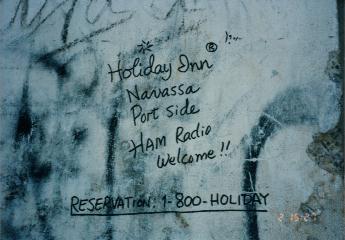 Holiday Inn®
Navassa
Port side
HAM Radio
Welcome!!
RESERVATION: 1-800-HOLIDAY